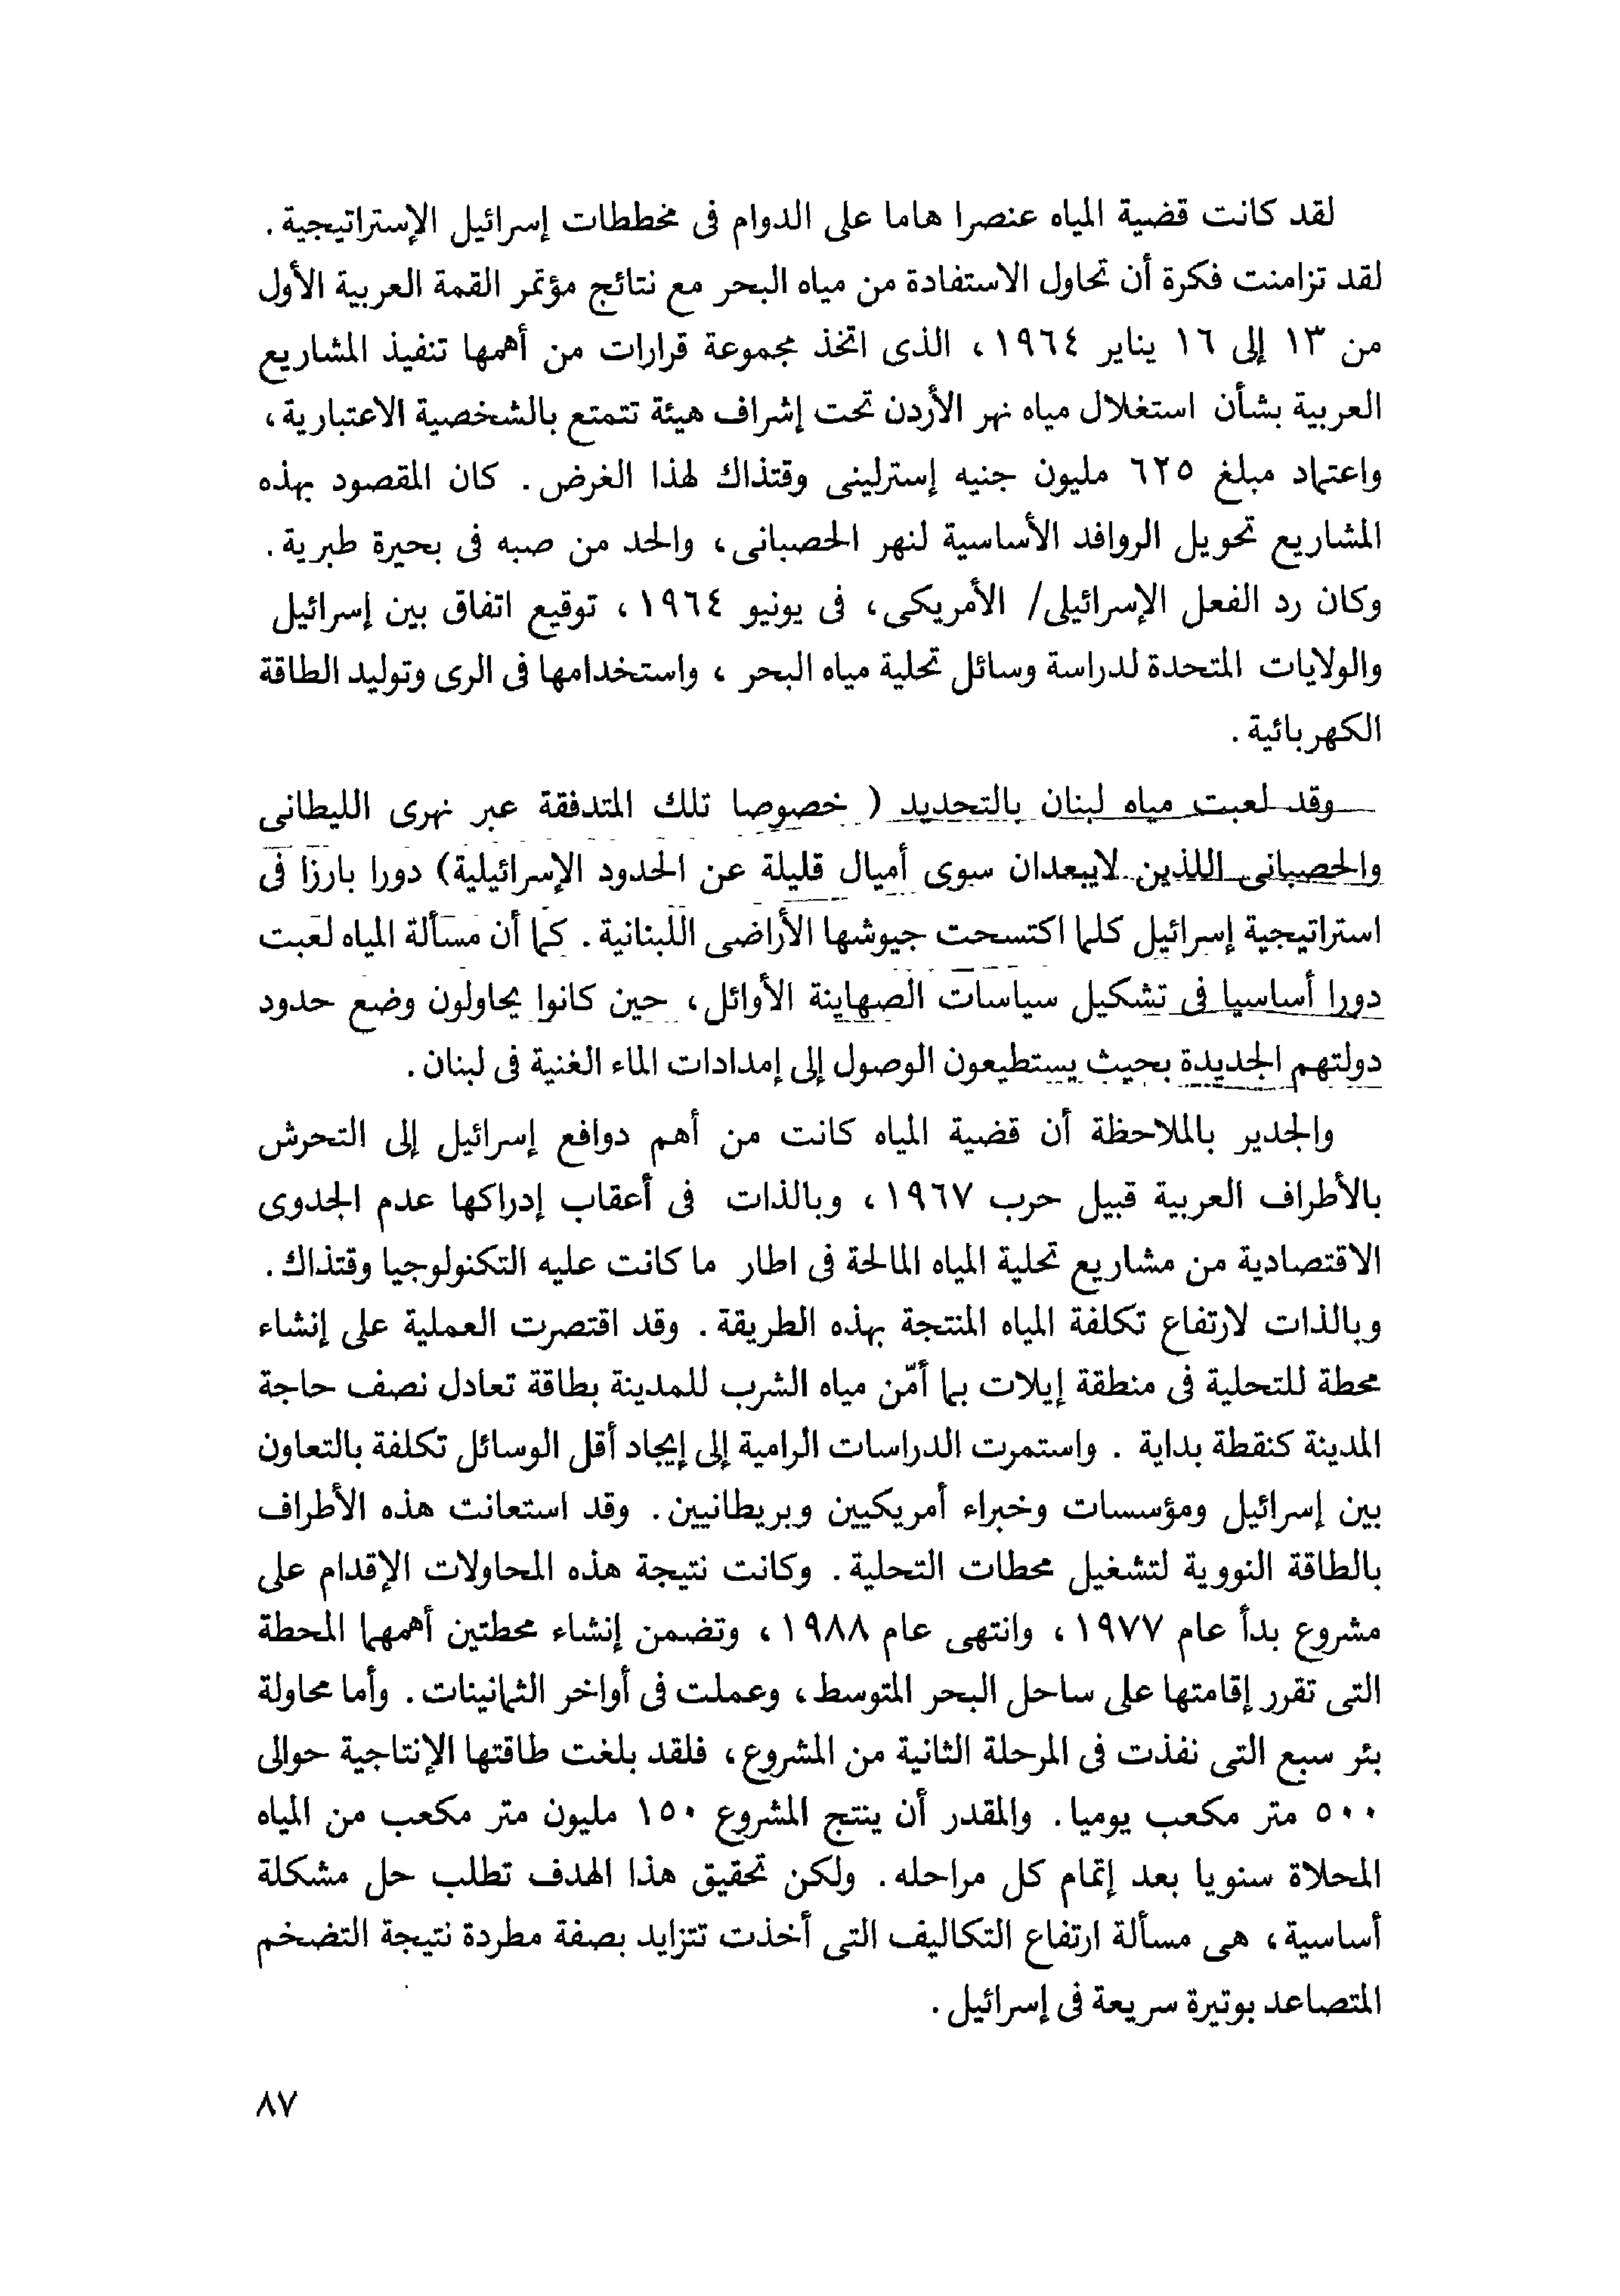 لقد كانت قضية المياه عنصرا هاما على الدوام فى مخططات إسرائيل الإستراتيجية .
لقد تزامنت فكرة أن تحاول الاستفادة من مياه البحر مع نتائج مؤتمر القمة العربية الأول
من ١٣ إلى ١٦ يناير ١٩٦٤ ، الذى اتخذ مجموعة قرارات من أهمها تنفيذ المشاريع
العربية بشأن استغلال مياه نهر الأردن تحت إشراف هيئة تتمتع بالشخصية الاعتبارية ،
واعتماد مبلغ ٦٢٥ مليون جنيه إسترلينى وقتذاك لهذا الغرض . كان المقصود بهذه
المشاريع تحويل الروافد الأساسية لنهر الحصبانى ، والحد من صبه فى بحيرة طبرية .
وكان رد الفعل الإسرائيلى/ الأمريكى ، فى يونيو ١٩٦٤ ، توقيع اتفاق بين إسرائيل
والولايات المتحدة لدراسة وسائل تحلية مياه البحر ، واستخدامها فى الرى وتوليد الطاقة
الكهربائية .
وقد لعبت مياه لبنان بالتحديد ( خصوصا تلك المتدفقة عبر نهرى الليطانى
والحصبانى اللذين لايبعدان سوى أميال قليلة عن الحدود الإسرائيلية) دورا بارزا فى
استراتيجية إسرائيل كلما اكتسحت جيوشها الأراضى اللبنانية . كما أن مسألة المياه لعبت
دورا أساسيا فى تشكيل سياسات الصهاينة الأوائل ، حين كانوا يحاولون وضع حدود
دولتهم الجديدة بحيث يستطيعون الوصول إلى إمدادات الماء الغنية فى لبنان .
والجدير بالملاحظة أن قضية المياه كانت من أهم دوافع إسرائيل إلى التحرش
بالأطراف العربية قبيل حرب ١٩٦٧ ، وبالذات فى أعقاب إدراكها عدم الجدوى
الاقتصادية من مشاريع تحلية المياه المالحة فى اطار ما كانت عليه التكنولوجيا وقتذاك .
وبالذات لارتفاع تكلفة المياه المنتجة بهذه الطريقة . وقد اقتصرت العملية على إنشاء
محطة للتحلية فى منطقة إيلات بما أمّن مياه الشرب للمدينة بطاقة تعادل نصف حاجة
المدينة كنقطة بداية . واستمرت الدراسات الرامية إلى إيجاد أقل الوسائل تكلفة بالتعاون
بين إسرائيل ومؤسسات وخبراء أمريكيين وبريطانيين . وقد استعانت هذه الأطراف
بالطاقة النووية لتشغيل محطات التحلية . وكانت نتيجة هذه المحاولات الإقدام على
مشروع بدأ عام ١٩٧٧ ، وانتهى عام ١٩٨٨ ، وتضمن إنشاء محطتين أهمهما المحطة
التى تقرر إقامتها على ساحل البحر المتوسط ، وعملت فى أواخر الثمانينات . وأما محاولة
بئر سبع التى نفذت فى المرحلة الثانية من المشروع ، فلقد بلغت طاقتها الإنتاجية حوالى
٥٠٠ متر مكعب يوميا . والمقدر أن ينتج المشروع ١٥٠ مليون متر مكعب من المياه
المحلاة سنويا بعد إتمام كل مراحله . ولكن تحقيق هذا الهدف تطلب حل مشكلة
أساسية ، هى مسألة ارتفاع التكاليف التى أخذت تتزايد بصفة مطردة نتيجة التضخم
المتصاعد بوتيرة سريعة فى إسرائيل .
٨٧